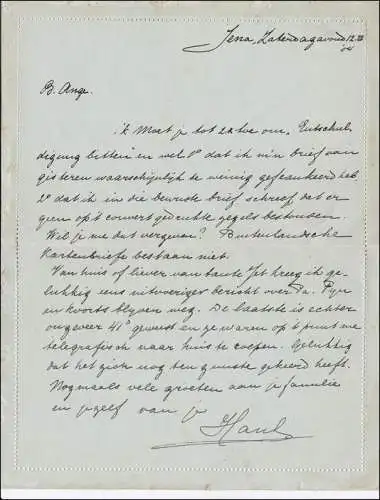 Jena, Zaterdagavond 12.III
B. Ange.
ik moet je tot 2x toe om "Entschul-
digung bitten" en wel 1° dat ik m'n brief van
gisteren waarschijnlijk te weinig gefrankeerd heb
2° dat ik in die bewuste brief schreef dat er
geen op 't couvert gedrukte zegels bestonden.
Wil je me dat vergeven? Buitenlandsche
Kartenbriefe bestaan niet.
Van huis of liever van tante Jet kreeg ik ge-
lukkig eens uitvoeriger bericht over Pa.
en koorts blijven weg. De laatste is echter
ongeveer 41° geweest en ze waren op 't punt me
telegrafisch naar huis te roepen. Gelukkig
dat het zich nog ten gunste gekeerd heeft.
Nogmaals vele groeten aan je familie
en jezelf van je